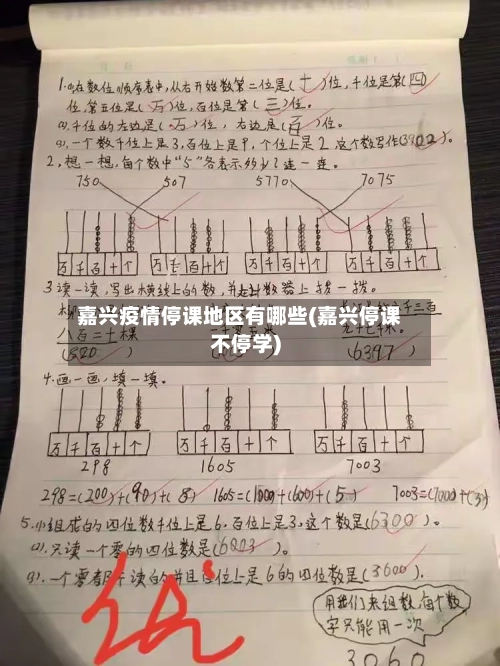 1.(1)在数位顺序表中,从右开始数第二位是(十)位,千位是第(四)
位,第五位是(万)位,百位是第(三)位。
(2),千位的左边是(万)位,右边是(百)位。
(3),一个数千位上是3,百位上是9,个位上是2这个数写作(3902)。
2,想一想,每个数中“5”各表示多少?连一连。
750 507 5770 7075
万千百十个 万千百十个 万千百十个 万千百十个
3读一读,写出横线上的数,并在计数器上拨一拨。
嘉兴疫情停课地区有哪些(嘉兴停课
不停学)
八百二十棵
(820) (6397)
4.画一画,填一填。
万千百十个 万千百十个 万千百十个
298 1605 7003
298=(200)+(90)+(8) 1605=(1000)+(600)+(5) 7003=(7000)+(3)
5.(1)组成的四位数千位上是6,百位上是3,这个数是(6300)。
(2).只读一个零的四位数是(6003)。
(3).一个零都不读的并且百位上是6的四位数是(3600).
用我们来组数,每个数
字只能用一次
3 0 6 0